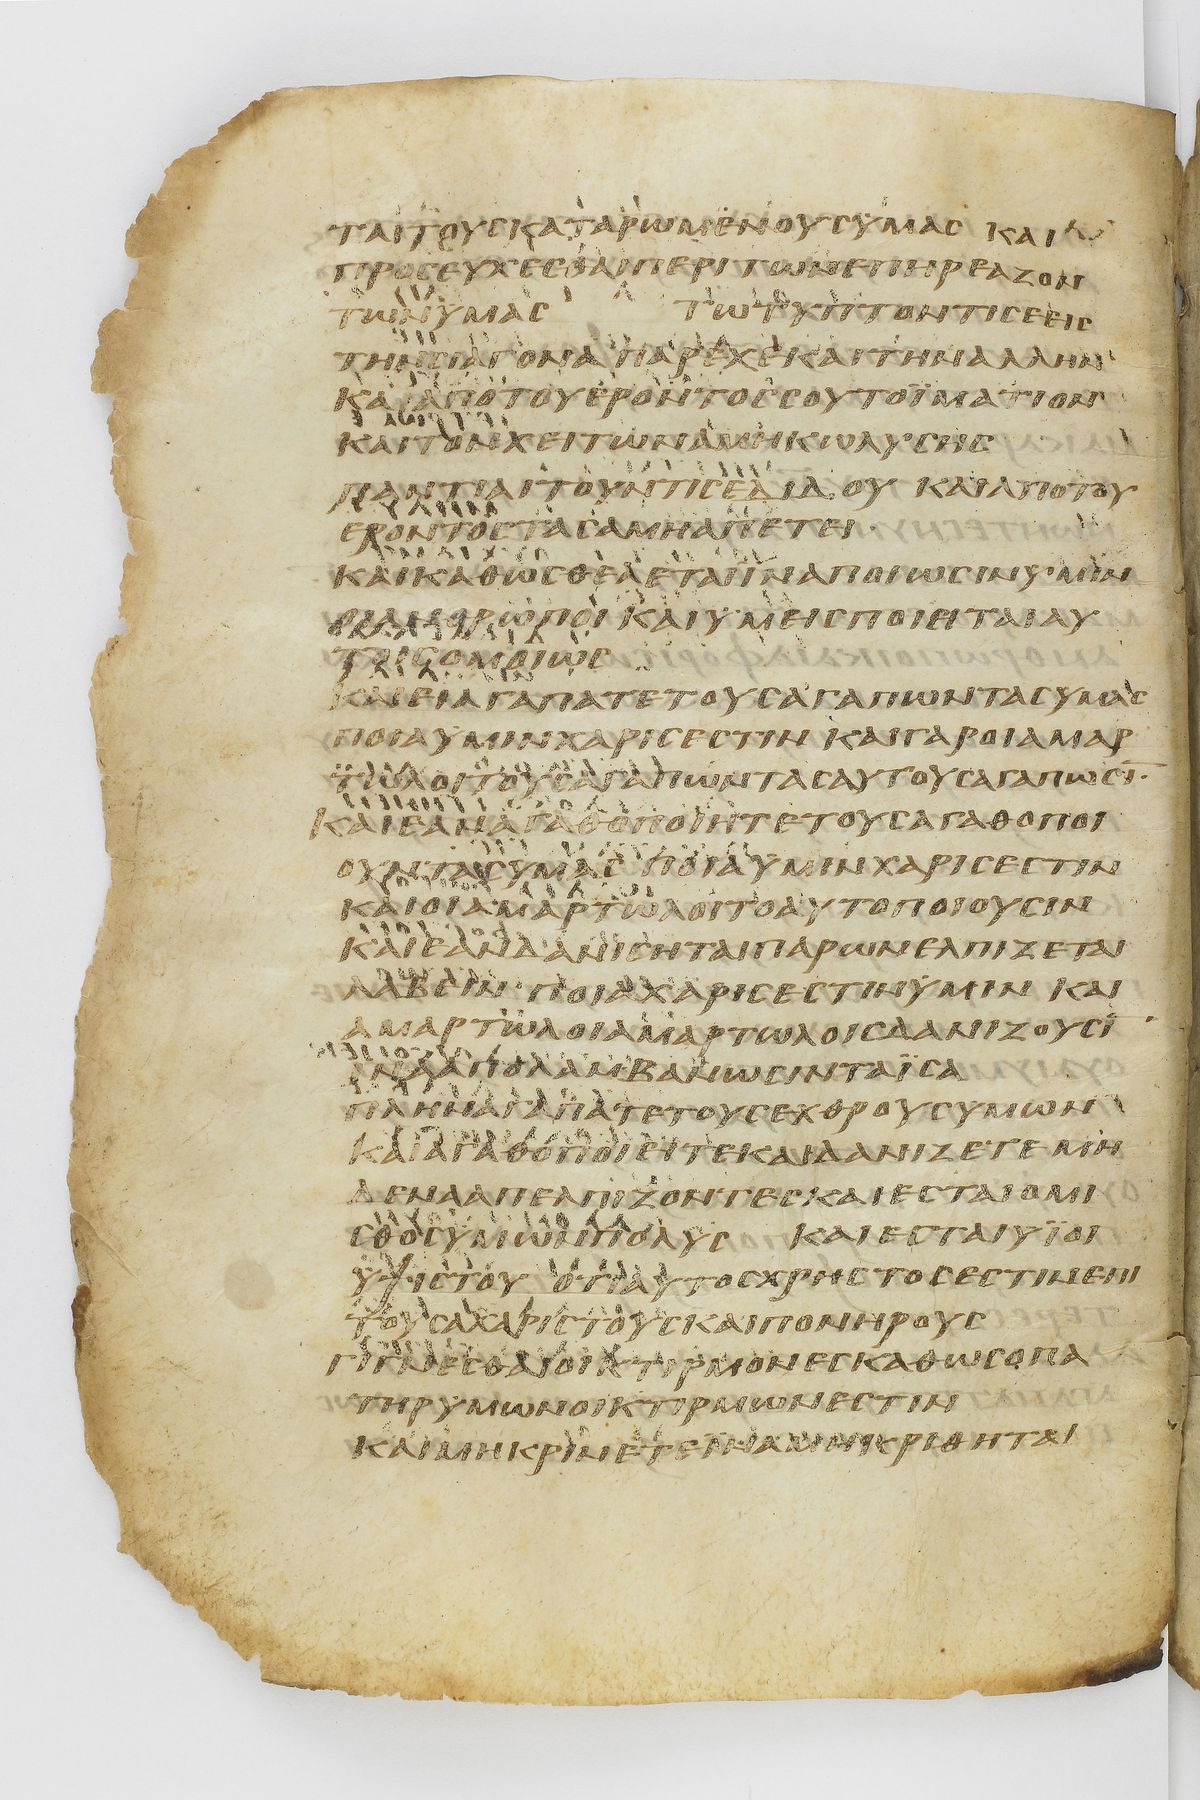 ται τους καταρωμενους υμας και
προσευχεσθαι περι των επηρεαζον
των υμας τω τυπτοντι σε εις
την σιαγονα παρεχε και την αλλην
και απο του εροντος σου το ϊματιον
και τον χειτωνα μη κωλυσης
παντι αιτουντι σε διδου και απο του
εροντος τα σα μη απετει·
και καθως θελεται ϊνα ποιωσιν υμιν
οι ανθρωποι και υμεις ποιειται αυ
τοις ομοιως
και ει αγαπατε τους αγαπωντας υμας
ποια υμιν χαρις εστιν και γαρ οι αμαρ
τωλοι τους αγαπωντας αυτους αγαπωσῑ·
και εαν αγαθοποιητε τους αγαθοποι
ουντας υμας ποια υμιν χαρις εστιν
και οι αμαρτωλοι το αυτο ποιουσιν
και εαν δανισηται παρ ων ελπιζεται
λαβειν ποια χαρις εστιν υμιν και
αμαρτωλοι αμαρτωλοις δανιζουσῑ
ϊνα απολαμβανωσιν τα ϊσα
πλην αγαπατε τους εχθρους υμων
και αγαθοποιειτε και δανιζετε μη
δενα απελπιζοντες και εσται ο μι
σθος υμων πολυς και εσται υϊοι
υψιστου οτι αυτος χρηστος εστιν επι
τους αχαριστους και πονηρους
γιγνεσθαι οικτιρμονες καθως ο πα
τηρ υμων οικτιρμων εστιν
και μη κρινετε ϊνα μη κριθηται